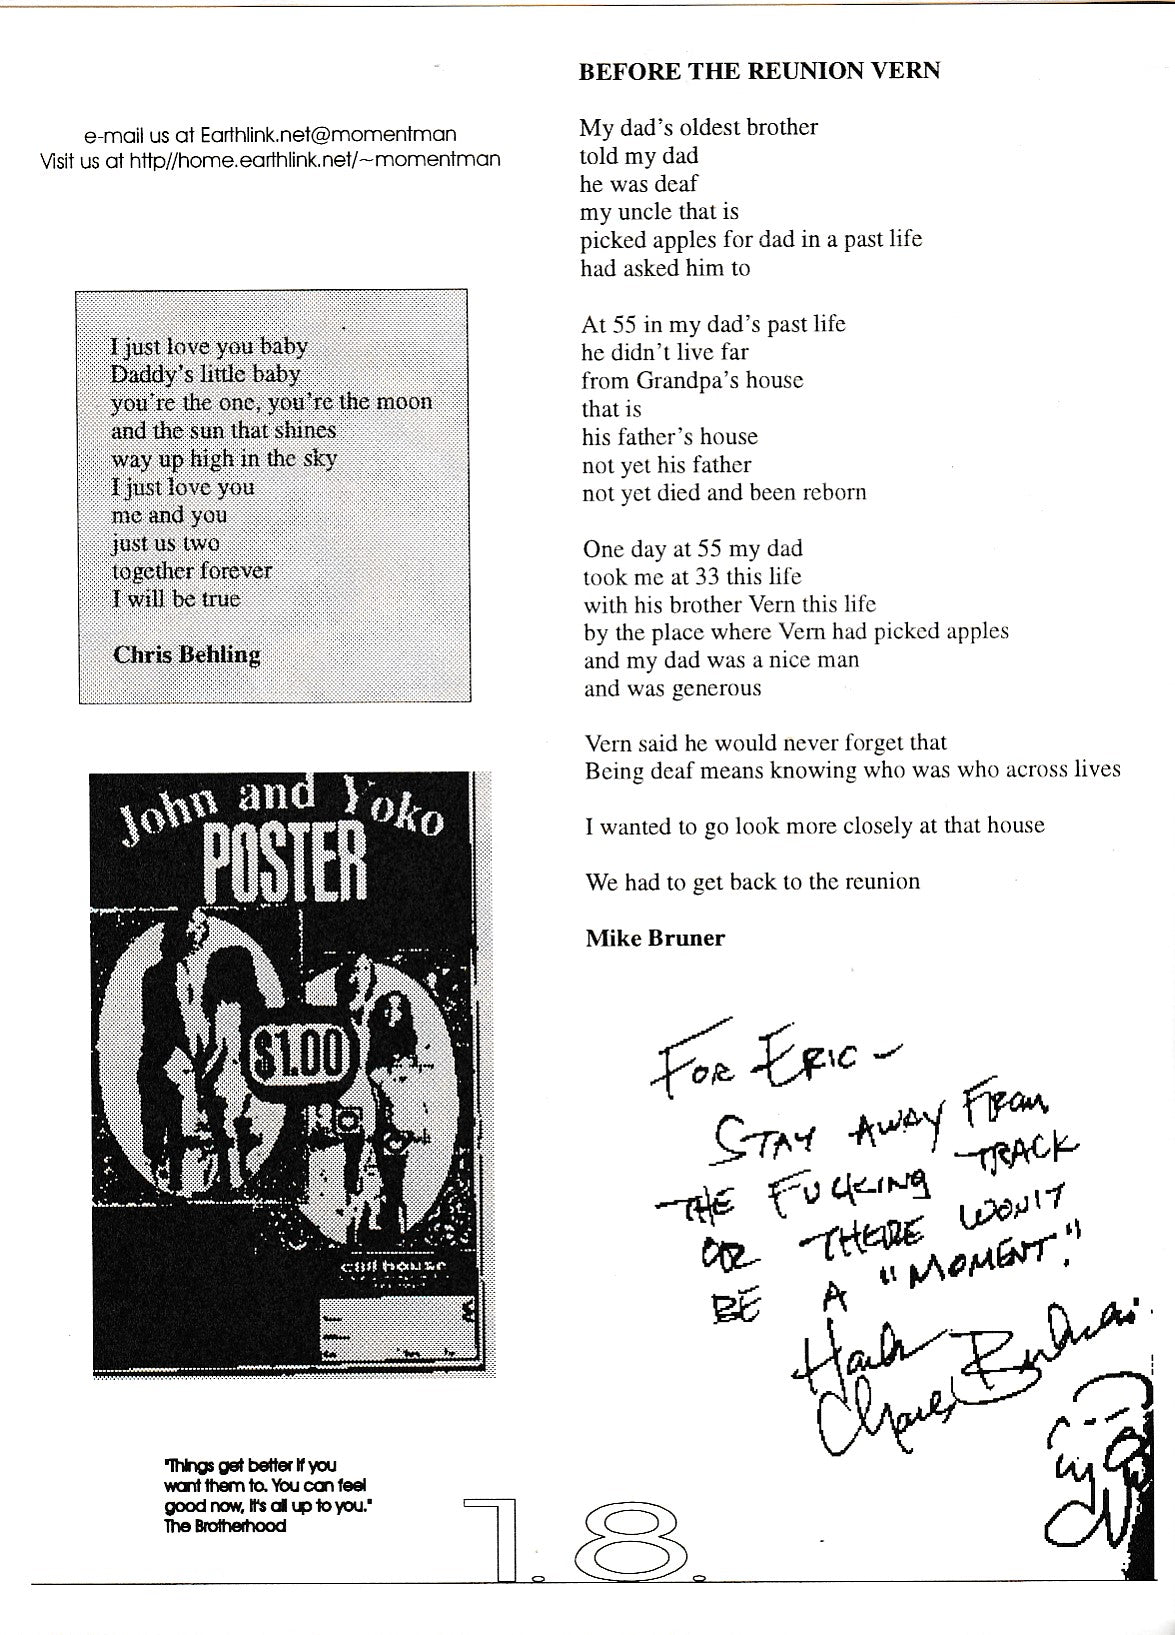 e-mail us at Earthlink.net@momentman
Visit us at http//home.earthlink.net/~momentman
I just love you baby
Daddy's little baby
you're the one, you're the moon
and the sun that shines
way up high in the sky
I just love you
me and you
just us two
together forever
I will be true
Chris Behling
John and Yoko
POSTER
$1.00
"Things get better if you
want them to. You can feel
good now, it's all up to you."
The Brotherhood
BEFORE THE REUNION VERN
My dad's oldest brother
told my dad
he was deaf
my uncle that is
picked apples for dad in a past life
had asked him to
At 55 in my dad's past life
he didn't live far
from Grandpa's house
that is
his father's house
not yet his father
not yet died and been reborn
One day at 55 my dad
took me at 33 this life
with his brother Vern this life
by the place where Vern had picked apples
and my dad was a nice man
and was generous
Vern said he would never forget that
Being deaf means knowing who was who across lives
I wanted to go look more closely at that house
We had to get back to the reunion
Mike Bruner
FOR ERIC —
STAY AWAY FROM
THE FUCKING TRACK
OR THERE WON'T
BE A "MOMENT."
Hank
Charles Bukowski
1.8.